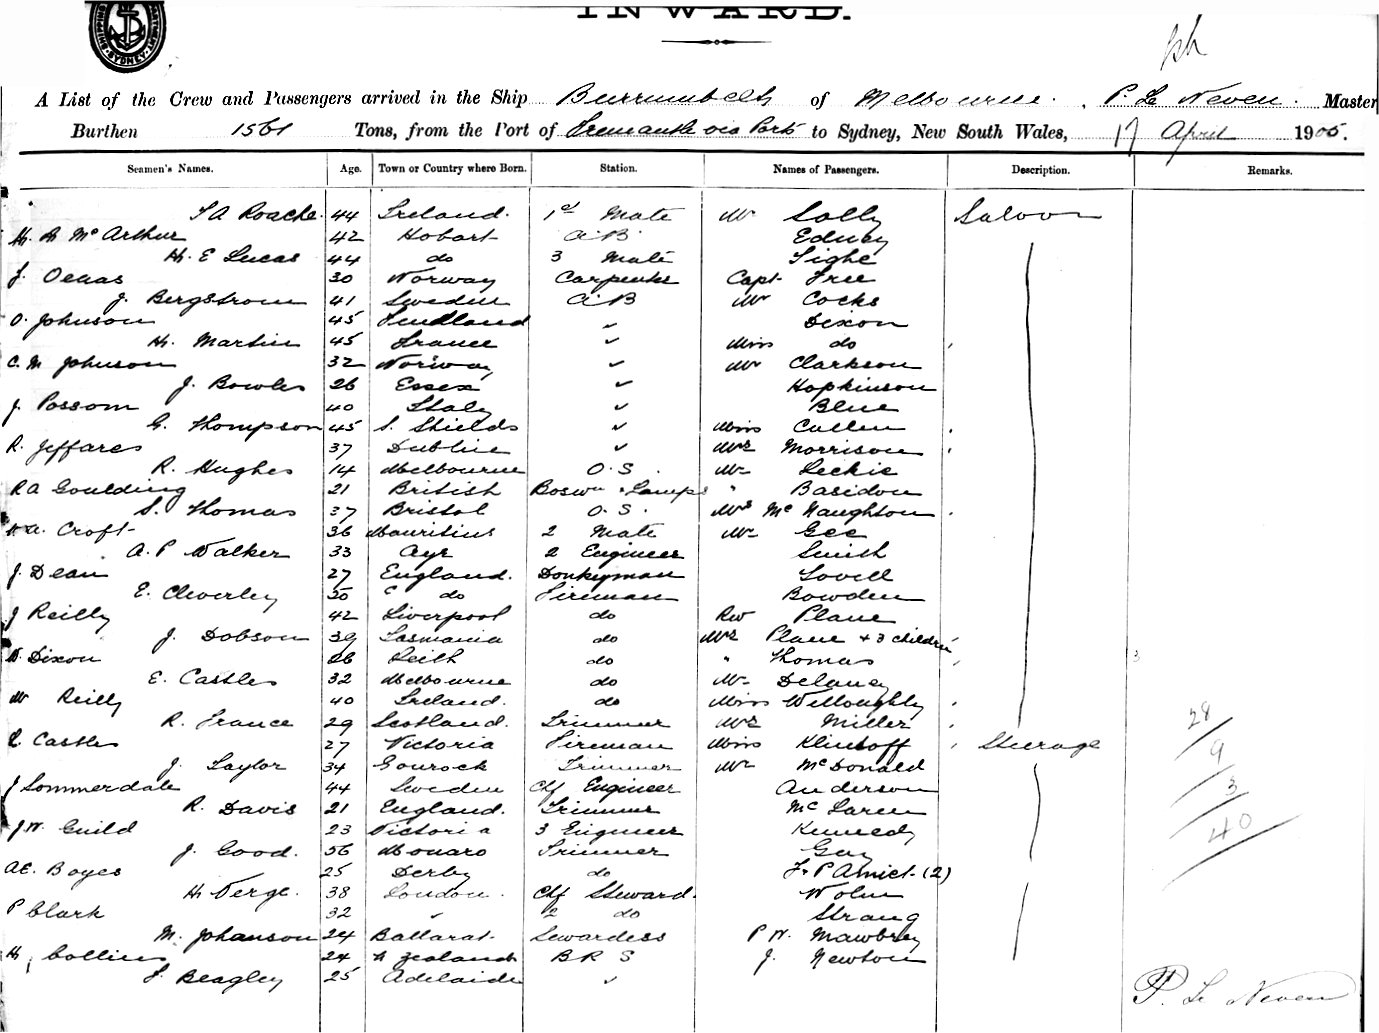 INWARD.
A List of the Crew and Passengers arrived in the Ship Burrumbeet of Melbourne. P. Le Neven. Master
Burthen Tons, from the Port of Fremantle via Ports to Sydney, New South Wales, 17 April 1905.
Seamen's Names. Age. Town or Country where Born. Station. Names of Passengers. Description. Remarks.
Roache 44 Ireland. 1st Mate Mr Solly Saloon
McArthur 42 Hobart A.B. Edney
H. E Lucas 44 do 3 Mate Tighe
30 Norway Carpenter Capt Free
J. Bergstrom 41 Sweden A.B Mr Cocks
O. Johnson 45 Dixon
H. Martin 45 France ✓ Miss do
C. M Johnson 32 Norway ✓ Mr Clarkson
J. Bowles 26 Essex ✓ Hopkinson
J. Possom 40 Italy ✓ Blue
G. Thompson 45 S. Shields ✓ Miss Cullen
R. Jeffares 37 Dublin ✓ Mrs Morrison
R. Hughes 14 Melbourne O.S. Mr Leckie
R A Goulding 21 British Boswn & Lamps " Basidon
S. Thomas 37 Bristol O.S. Mrs McNaughton
Croft 36 Mauritius 2 Mate Mr Gee
A. P Walker 33 Ayr 2 Engineer Smith
J. Dean 27 England. Donkeyman Lovell
E. Cleverley 30 do Fireman Bowden
J Reilly 42 Liverpool do Rev Plane
J. Dobson 39 Tasmania do Mrs Plane + 3 children
Dixon 26 Leith do " Thomas
E. Castles 32 Melbourne do Mr Delaney
W Reilly 40 Ireland. do Miss Willoughby
R. France 29 Scotland. Trimmer Mrs Miller 28
Castles 27 Victoria Fireman Miss Klintoff Steerage 9
J. Taylor 34 Gourock Trimmer Mr McDonald
J Sommerdale 44 Sweden Chf Engineer Anderson 3
R. Davis 21 England. Trimmer McLaren
J W. Guild 23 Victoria 3 Engineer Kennedy 40
J. Good. 56 Monaro Trimmer Gay
A E. Boyes 25 Derby do F. P Amiet (2)
H. Verge. 38 London. Chf Steward.
P Clark 32 ✓ 2 do Strang
M. Johanson 24 Ballarat. Stewardess P W. Mawbrey
H. Collins 24 N Zealand B R S J. Newton
Beagley 25 Adelaide ✓
P. Le Neven